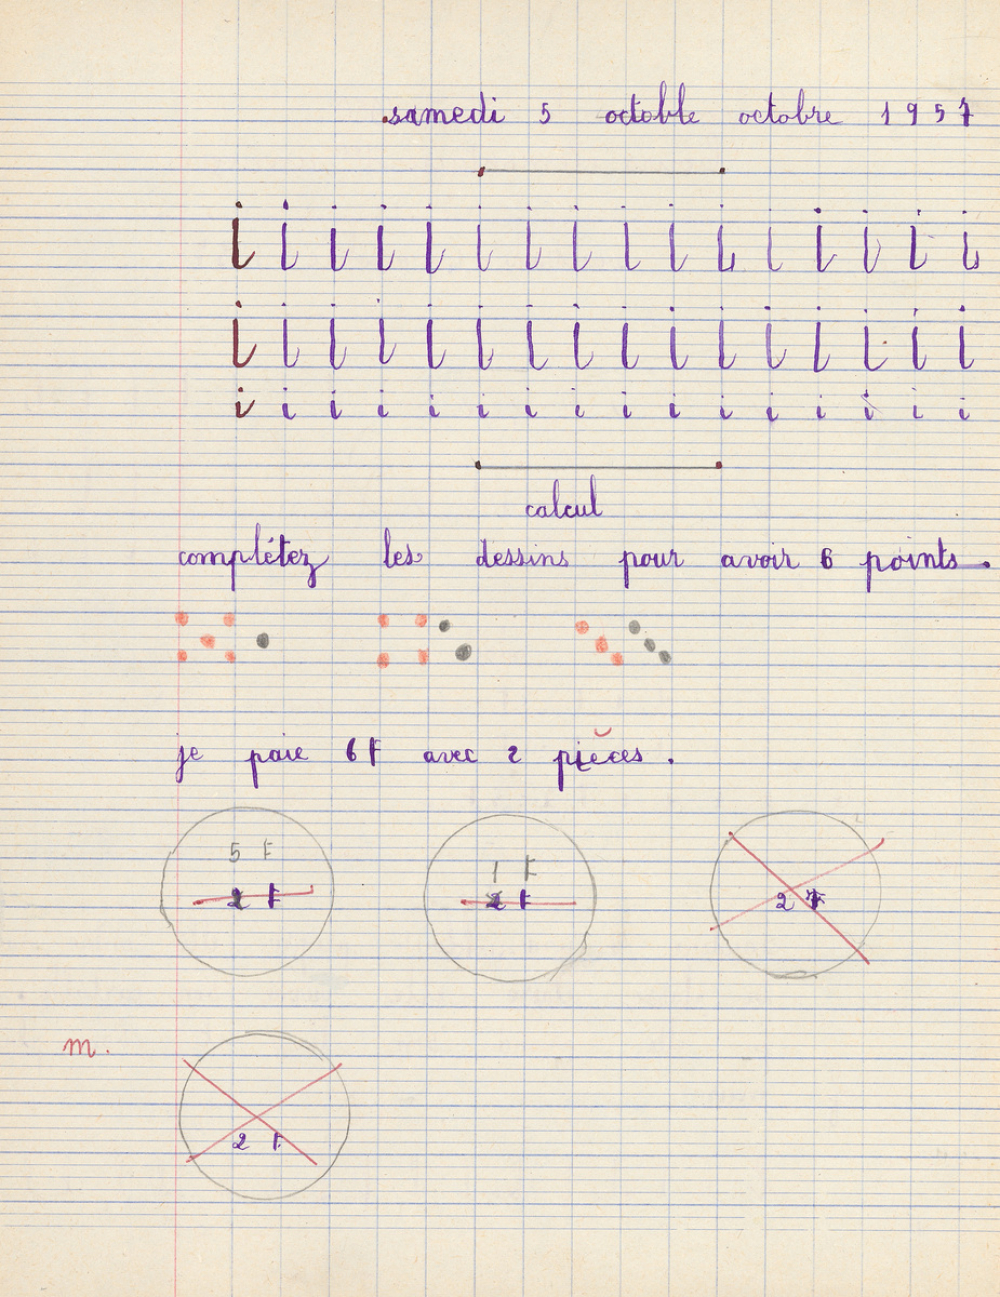 samedi 5 octoble octobre 1957
i i i i i i i i i i i i i i i i
i i i i i i i i i i i i i i i i
i i i i i i i i i i i i i i i i
calcul
complétez les dessins pour avoir 6 points.
je paie 6 F avec 2 pièces.
5 F 1 F
2 F 2 F 2 F
m.
2 F